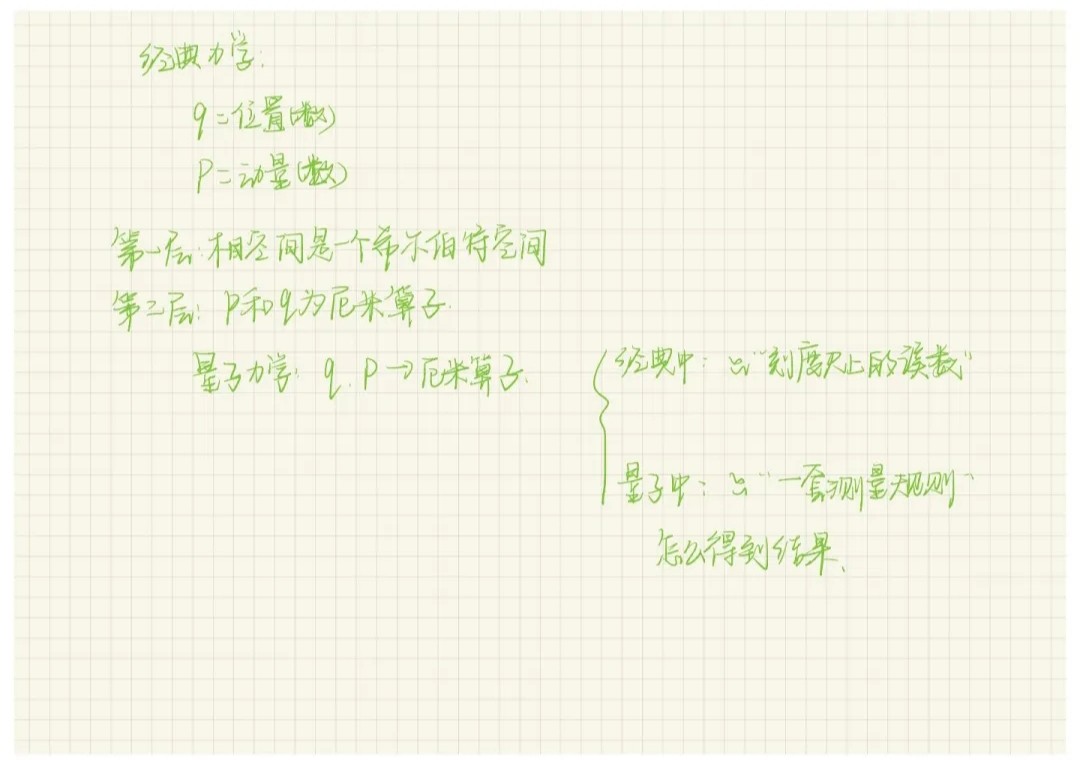 经典力学:
q=位置(数)
p=动量(数)
第一层:相空间是一个希尔伯特空间
第二层: p和q为厄米算子.
量子力学: q, p→厄米算子.
经典中: "刻度尺上的读数"
量子中: "一套测量规则"
怎么得到结果.